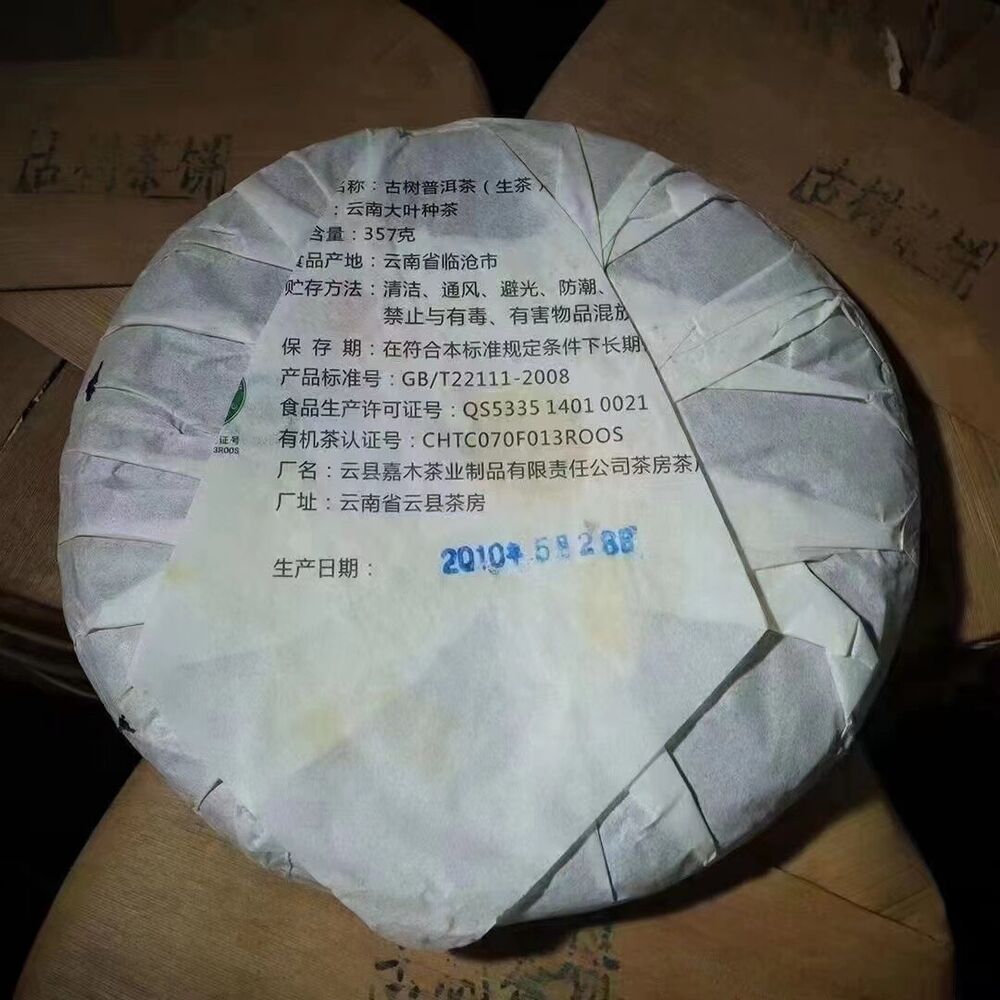 古树茶饼
古树茶饼
名称：古树普洱茶（生茶）
：云南大叶种茶
含量：357克
食品产地：云南省临沧市
贮存方法：清洁、通风、避光、防潮、
禁止与有毒、有害物品混放
保 存 期：在符合本标准规定条件下长期
产品标准号：GB/T22111-2008
食品生产许可证号：QS5335 1401 0021
有机茶认证号：CHTC070F013ROOS
证号
3ROOS
厂名：云县嘉木茶业制品有限责任公司茶房茶厂
厂址：云南省云县茶房
生产日期：2010年5月28日